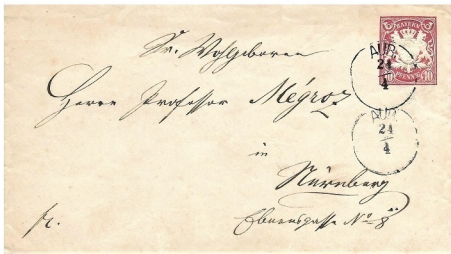 BAYERN
10 PFENNIG 10
AUB
24
4
AUB
24
4
Sr. Wohlgeboren
Herrn Professor Mégroz
in
Nürnberg
fr.
No 8